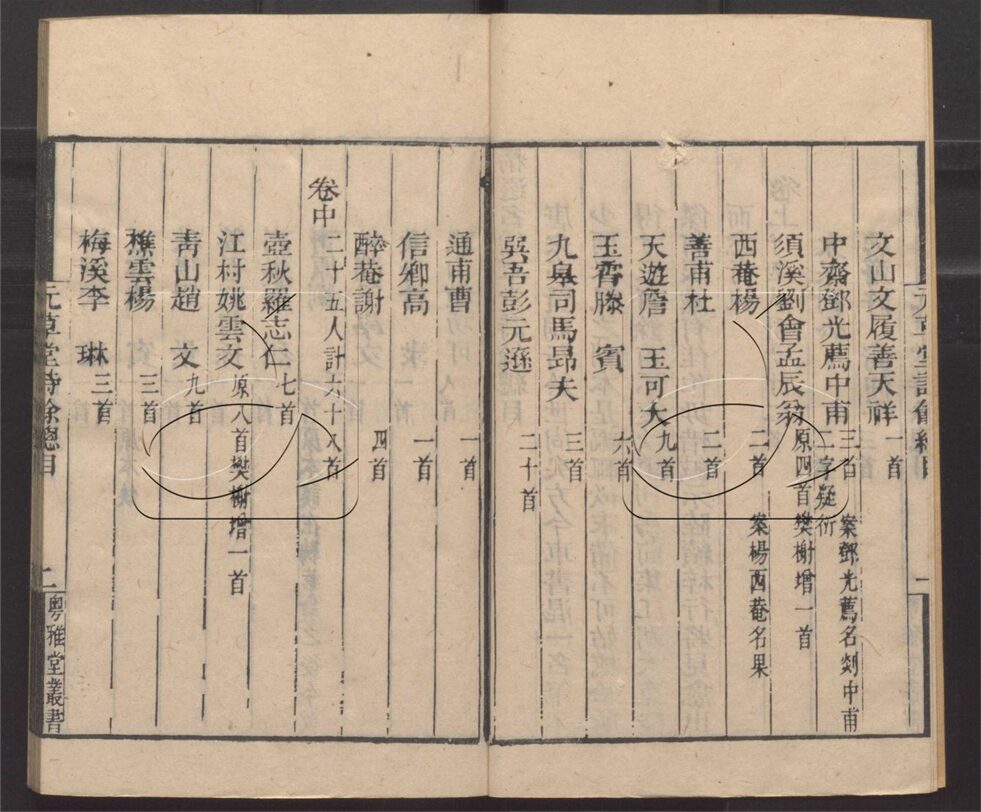 文山文履善天祥 一首
中齋鄧光薦中甫 三首 案鄧光薦名剡中甫二字疑衍
須溪劉會孟辰翁 原四首樊榭增一首
西菴楊 二首 案楊西菴名果
善甫杜 二首
天遊詹 玉可大 九首
玉霄滕 賓 六首
九臯司馬昂夫 三首
吳吾彭元遜 二十首
通甫曹 一首
信卿高 一首
醉菴謝 四首
卷中 二十五人計六十八首
壺秋羅志仁 七首
江村姚雲文 原八首樊榭增一首
靑山趙 文 九首
樵雲楊 三首
梅溪李 琳 三首
元草堂詩餘總目 二 粵雅堂叢書